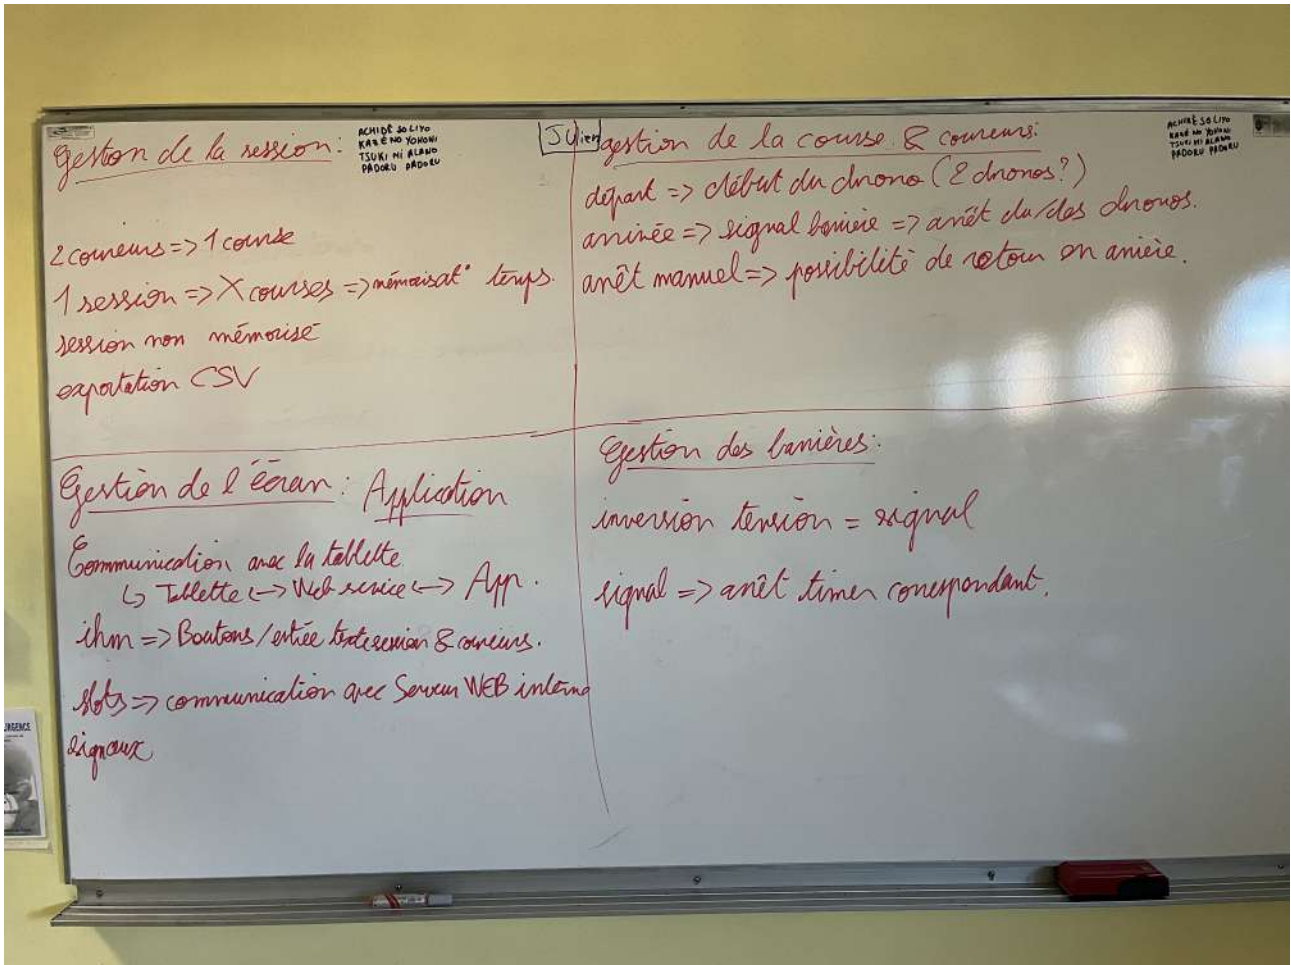 Gestion de la session:
ACHIDÉ SO LIYO
KAZÉ NO YOHONI
TSUKI MI ALANO
PADORU PADORU
2 coureurs => 1 course
1 session => X courses => mémorisat° temps.
session non mémorisé
exportation CSV
JUlien
gestion de la course & coureurs:
départ => début du chrono (2 chronos?)
arrivée => signal barrière => arrêt du/des chronos.
arrêt manuel => possibilité de retour en arrière.
ACHIDÉ SO LIYO
KAZÉ NO YOHONI
TSUKI MI ALANO
PADORU PADORU
Gestion de l'écran: Application
Communication avec la tablette
↳ Tablette <-> Web service <-> App.
ihm => Boutons/entrée texte session & coureurs.
slots => communication avec Serveur WEB interne
signaux
Gestion des barrières:
inversion tension = signal
signal => arrêt timer correspondant.
URGENCE